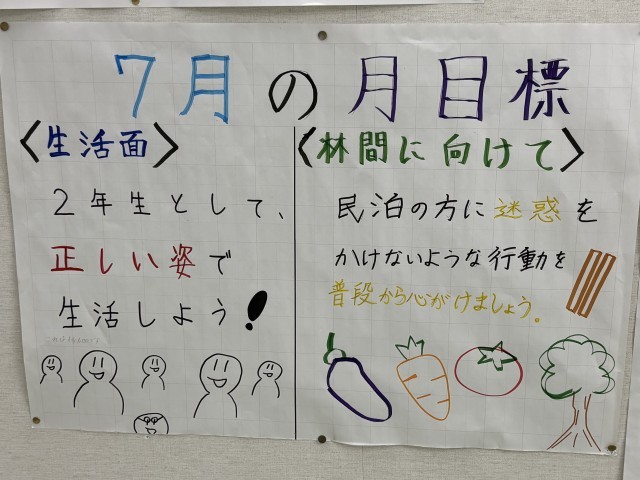 7月の月目標
〈生活面〉
2年生として、
正しい姿で
生活しよう!
〈林間に向けて〉
民泊の方に迷惑を
かけないような行動を
普段から心がけましょう。